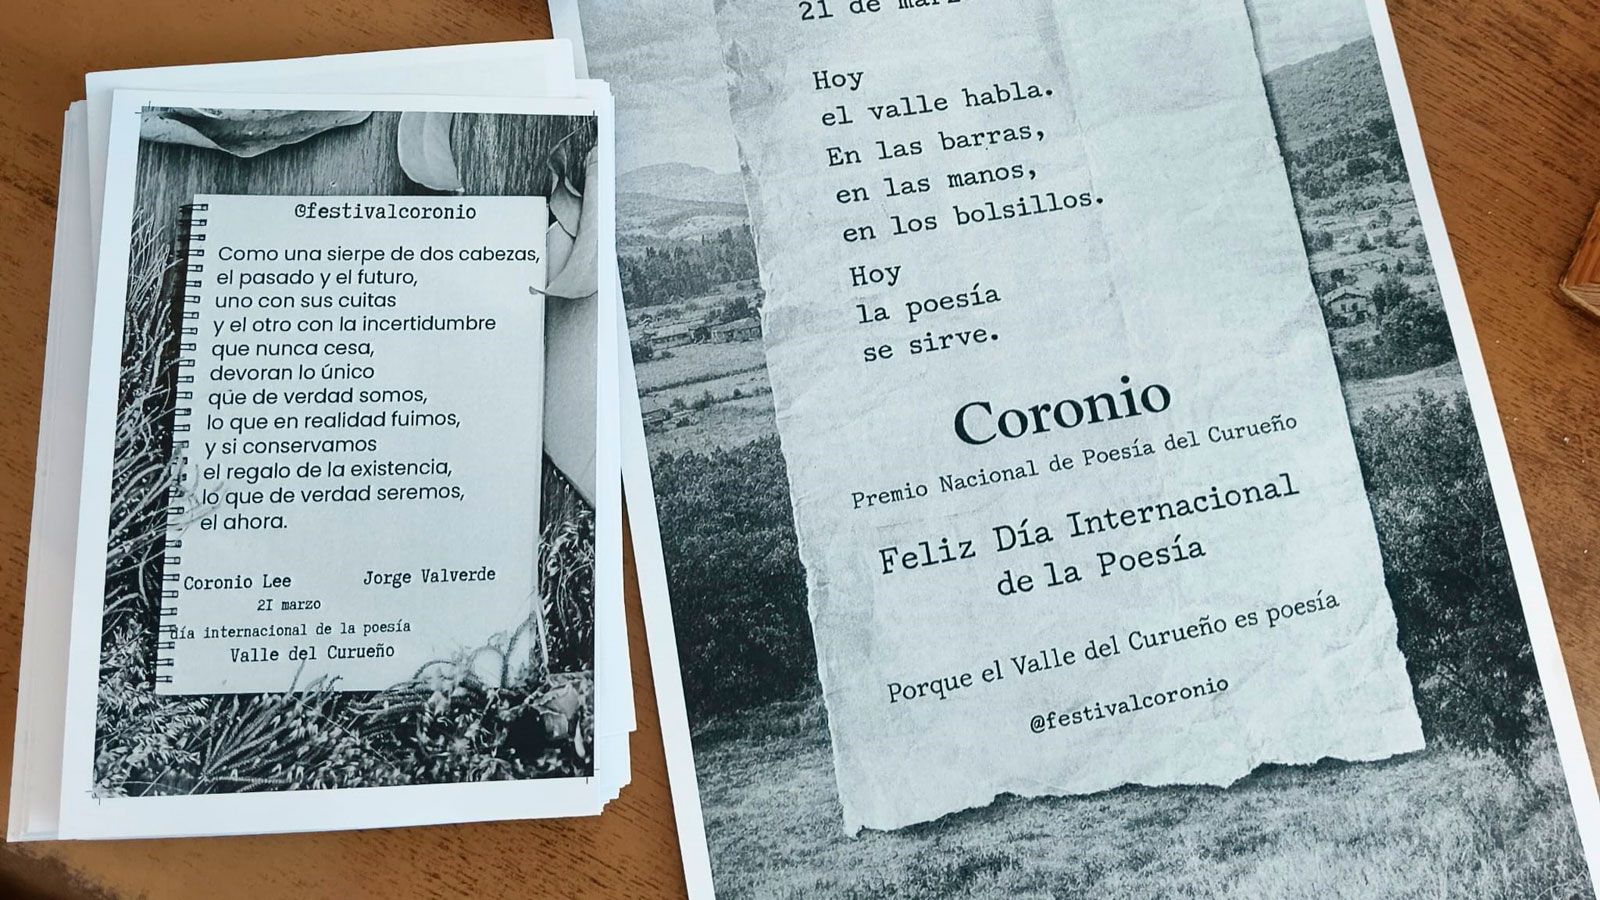 @festivalcoronio
Como una sierpe de dos cabezas,
el pasado y el futuro,
uno con sus cuitas
y el otro con la incertidumbre
que nunca cesa,
devoran lo único
que de verdad somos,
lo que en realidad fuimos,
y si conservamos
el regalo de la existencia,
lo que de verdad seremos,
el ahora.
Coronio Lee Jorge Valverde
21 marzo
día internacional de la poesía
Valle del Curueño
21 de marzo
Hoy
el valle habla.
En las barras,
en las manos,
en los bolsillos.
Hoy
la poesía
se sirve.
Coronio
Premio Nacional de Poesía del Curueño
Feliz Día Internacional
de la Poesía
Porque el Valle del Curueño es poesía
@festivalcoronio